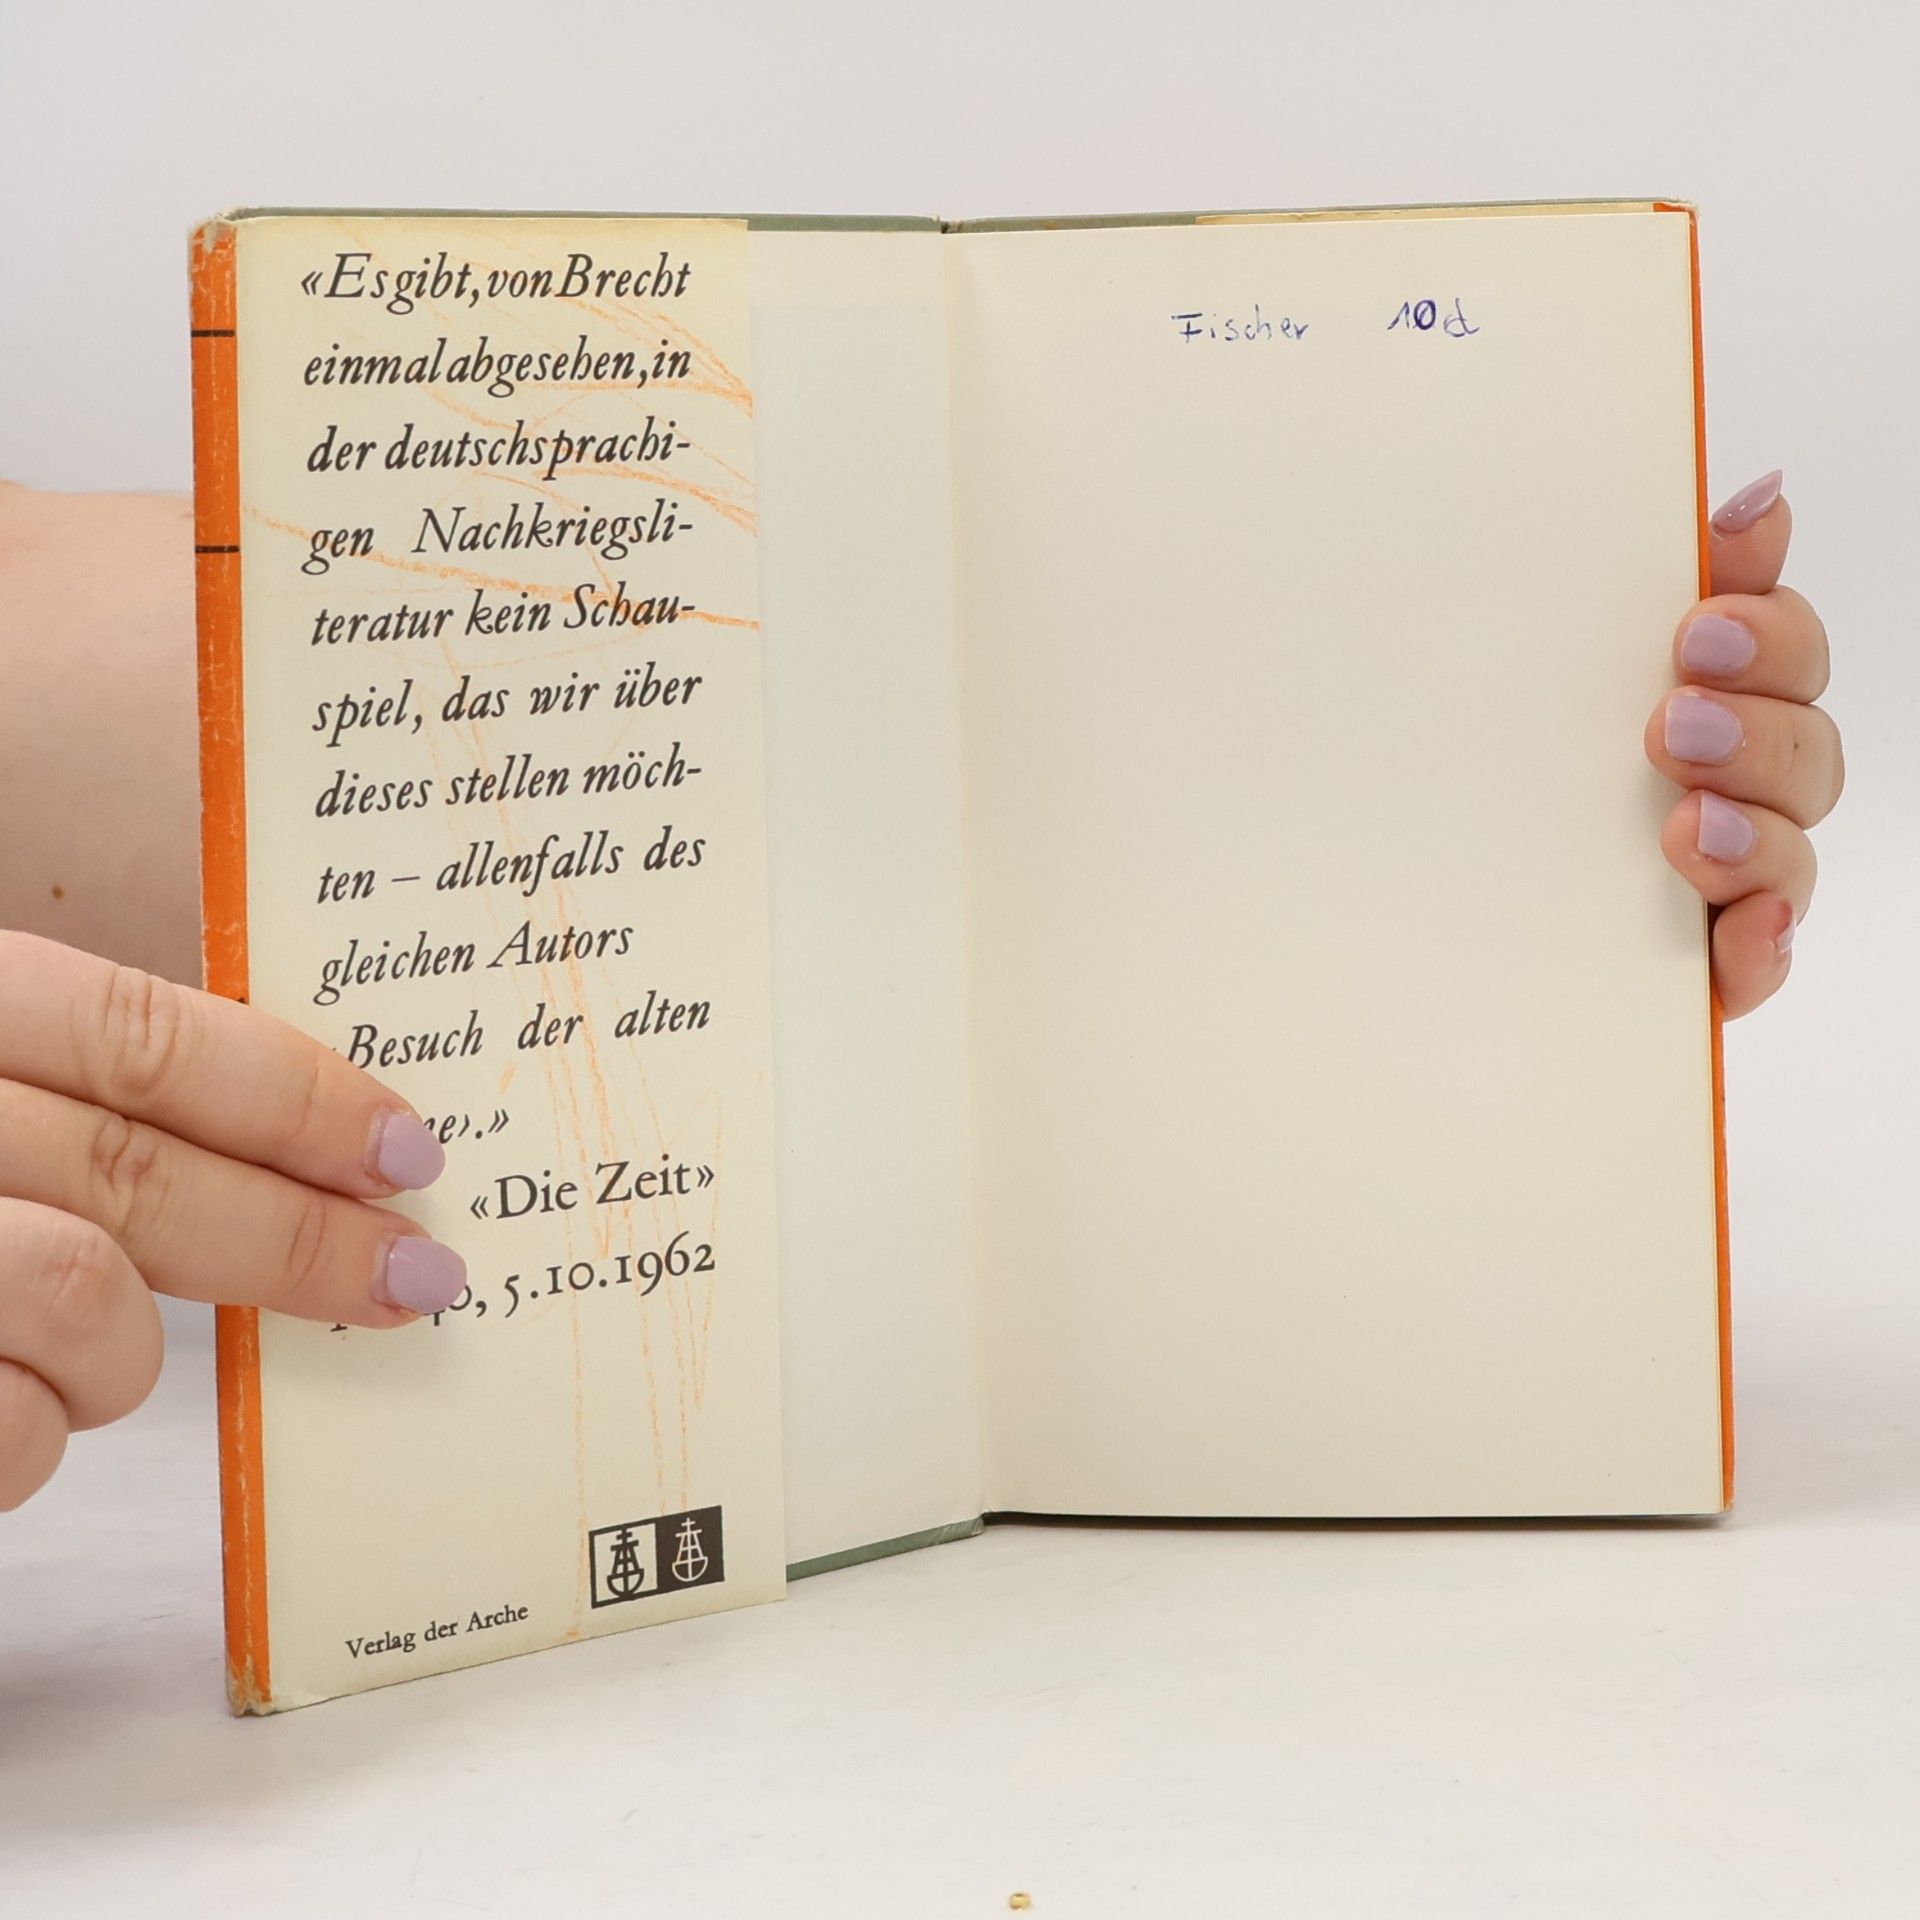 «Es gibt, von Brecht
einmal abgesehen, in
der deutschsprachi-
gen Nachkriegsli-
teratur kein Schau-
spiel, das wir über
dieses stellen möch-
ten – allenfalls des
gleichen Autors
‹Besuch der alten
e›.»
«Die Zeit»
40, 5.10.1962
Verlag der Arche
Fischer 10d